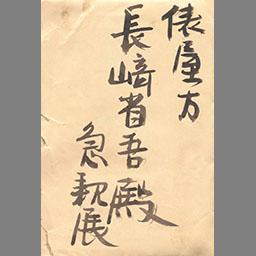 俵屋方
長﨑省吾殿
急親展